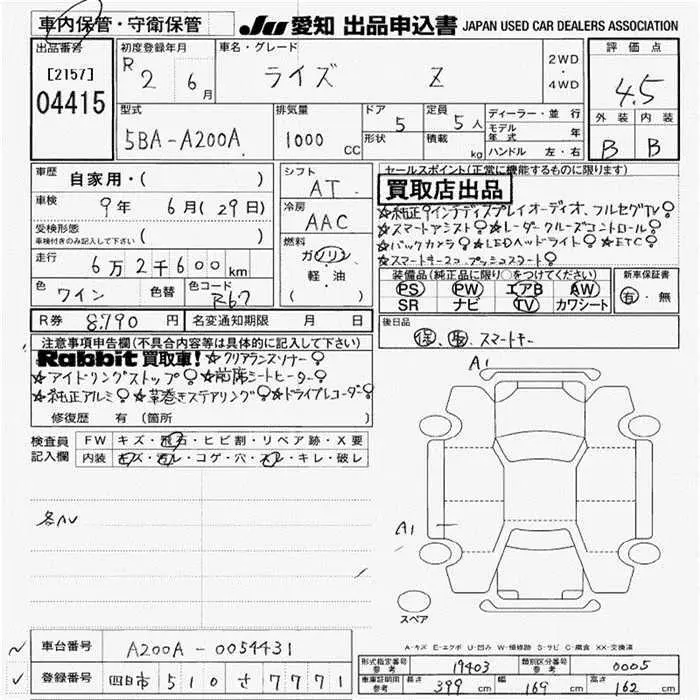 車内保管・守衛保管
JU 愛知 出品申込書 JAPAN USED CAR DEALERS ASSOCIATION
出品番号
[2157]
04415
初度登録年月
R 2 6月
車名・グレード
ライズ Z
2WD
・
4WD
評価点
4.5
外装 内装
B B
型式
5BA-A200A
排気量
1000 CC
ドア
5
形状
定員
5人
積載
kg
ディーラー・並行
モデル年式 年
ハンドル 左・右
車歴
自家用・( )
車検
9年 6月(29日)
受検形態
車検付きのみ記入して下さい ( )
走行
6万2千600km
色
ワイン
色替
色コード
R67
シフト
AT
冷房
AAC
燃料
ガソリン
・
軽・油
( )
R券 8,790 円
名変通知期限 月 日
セールスポイント(正常に機能するものに限ります)
買取店出品
☆純正9インチディスプレイオーディオ、フルセグTV
☆スマートアシスト ☆レーダークルーズコントロール
☆バックカメラ ☆LEDヘッドライト ☆ETC
☆スマートキーx2 プッシュスタート
装備品(純正品に限り○をつけてください)
PS PW エアB AW
SR ナビ TV カワシート
新車保証書
有・無
後日品
保、取、スマートキー
注意事項申告欄(不具合内容等は具体的に記入して下さい)
Rabbit 買取車! ☆クリアランスソナー
☆アイドリングストップ ☆前席シートヒーター
☆純正アルミ ☆革巻きステアリング ☆ドライブレコーダー
修復歴 有(箇所 )
検査員記入欄
FW キズ・飛石・ヒビ割・リペア跡・X要
内装 キズ・汚レ・コゲ・穴・スレ・キレ・破レ
A1
A1
スペア
A-キズ E-エクボ U-凹み W-補修跡 S-サビ C-腐食 XX-交換済
車台番号 A200A-0054431
登録番号 四日市 510 さ 7771
形式指定番号 参考 19403
類別区分番号 参考 0005
車庫証明用 参考 長さ 399cm 幅 169cm 高さ 162cm